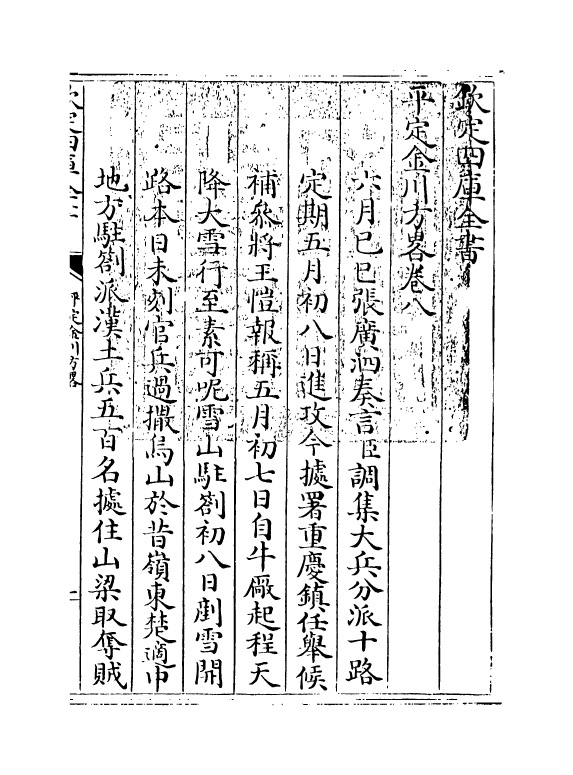 欽定四庫全書
平定金川方畧卷八
六月己巳張廣泗奏言臣調集大兵分派十路
定期五月初八日進攻今據署重慶鎮任舉候
補叅將王愷報稱五月初七日自牛廠起程天
降大雪行至素可呢雪山駐劄初八日剷雪開
路本日未刻官兵過撒烏山於昔嶺東楚適巾
地方駐劄派漢土兵五百名據住山梁取奪賊
欽定四庫全書
平定金川方畧